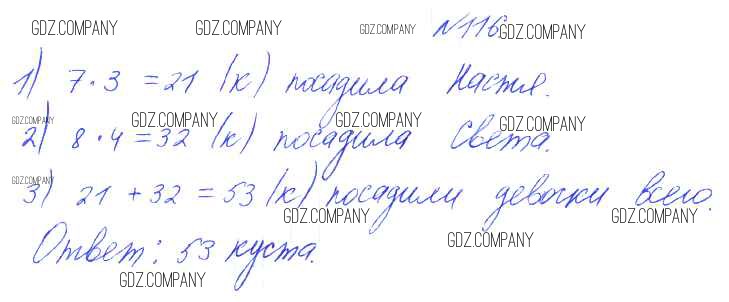 GDZ.COMPANY GDZ.COMPANY GDZ.COMPANY №116 GDZ.COMPANY
1) 7·3 =21 (к) посадила Настя.
GDZ.COMPANY GDZ.COMPANY GDZ.COMPANY GDZ.COMPANY
2) 8·4=32 (к) посадила Света.
GDZ.COMPANY
3) 21+32=53 (к) посадили девочки всего.
GDZ.COMPANY GDZ.COMPANY GDZ.COMPANY
Ответ: 53 куста.
GDZ.COMPANY